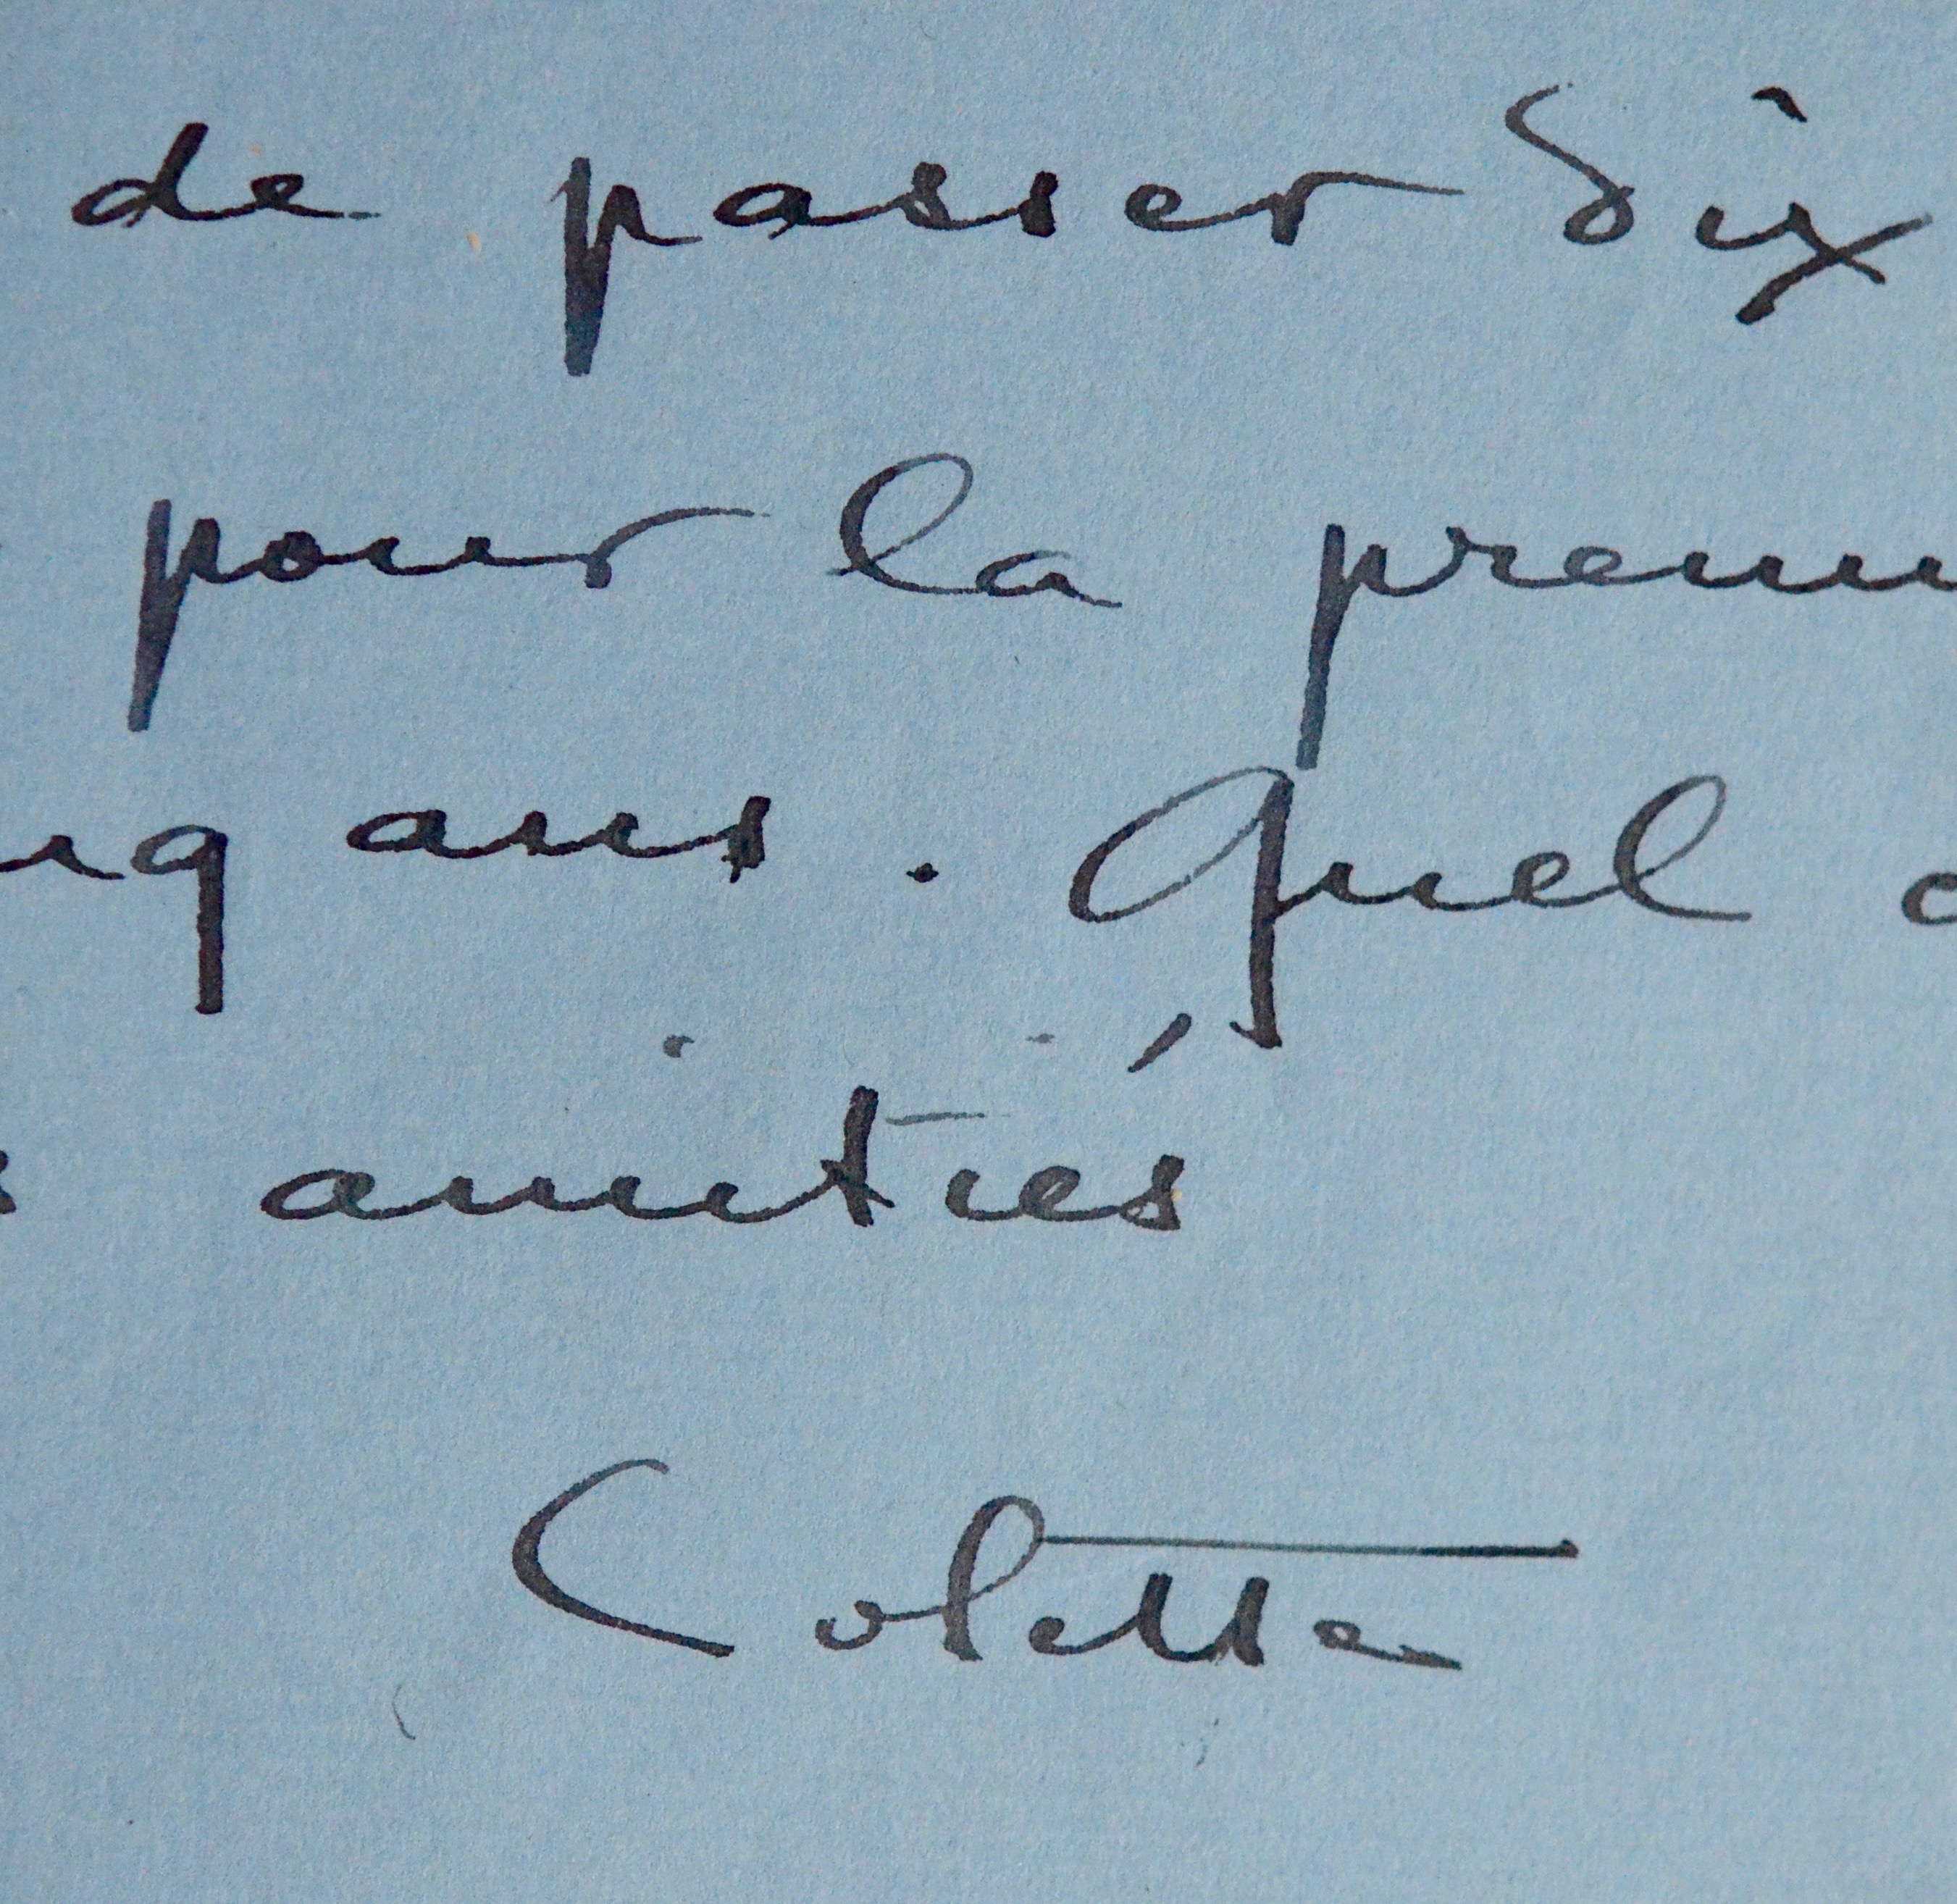 de passer dix
pour la prem
nq ans. Quel
s amitiés
Colette